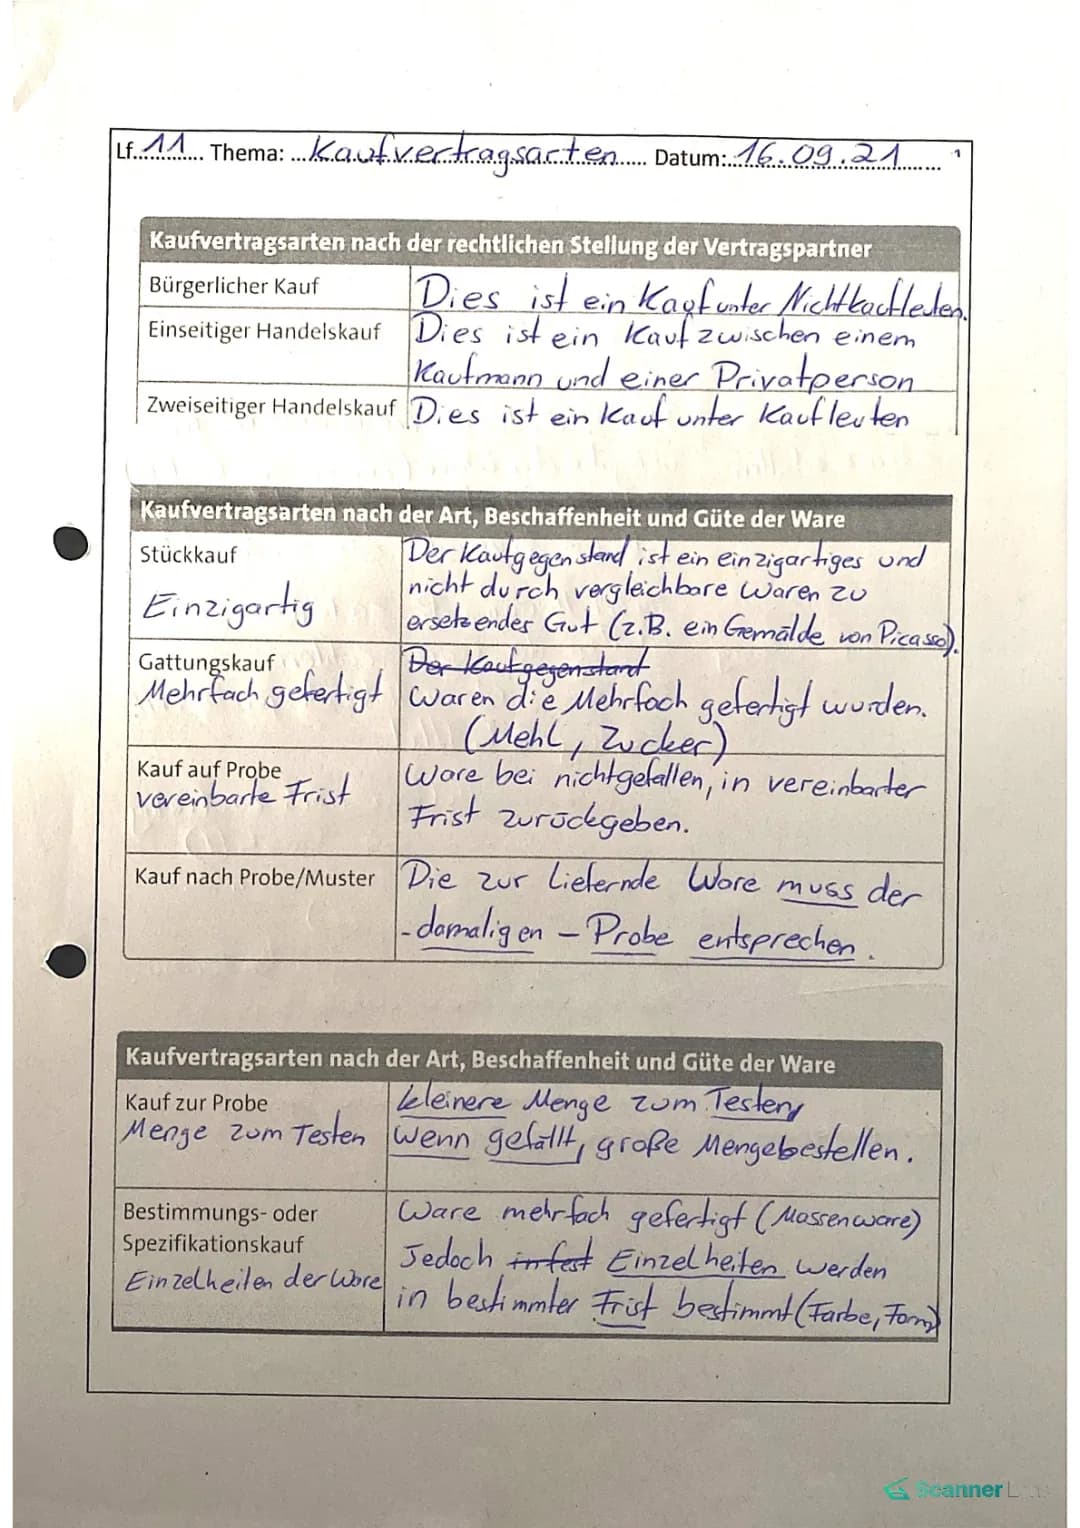 Lf. 11 Thema: Kaufvertragsarten Datum: 16.09.21 1
Kaufvertragsarten nach der rechtlichen Stellung der Vertragspartner
Bürgerlicher Kauf Dies ist ein Kauf unter Nichtkaufleuten.
Einseitiger Handelskauf Dies ist ein Kauf zwischen einem
Kaufmann und einer Privatperson
Zweiseitiger Handelskauf Dies ist ein Kauf unter Kaufleuten
Kaufvertragsarten nach der Art, Beschaffenheit und Güte der Ware
Stückkauf Der Kaufgegenstand ist ein einzigartiges und
nicht durch vergleichbare Waren zu
Einzigartig ersetzendes Gut (z.B. ein Gemälde von Picasso).
Gattungskauf Der Kaufgegenstand
Mehrfach gefertigt Waren die Mehrfach gefertigt wurden.
(Mehl, Zucker)
Kauf auf Probe Ware bei nichtgefallen, in vereinbarter
vereinbarte Frist Frist zurückgeben.
Kauf nach Probe/Muster Die zur Liefernde Ware muss der
-damaligen - Probe entsprechen.
Kaufvertragsarten nach der Art, Beschaffenheit und Güte der Ware
Kauf zur Probe kleinere Menge zum Testen,
Menge zum Testen Wenn gefällt, große Menge bestellen.
Bestimmungs- oder Ware mehrfach gefertigt (Massenware)
Spezifikationskauf Jedoch infest Einzelheiten werden
Einzelheiten der Ware in bestimmter Frist bestimmt (Farbe, Form)
Scanner